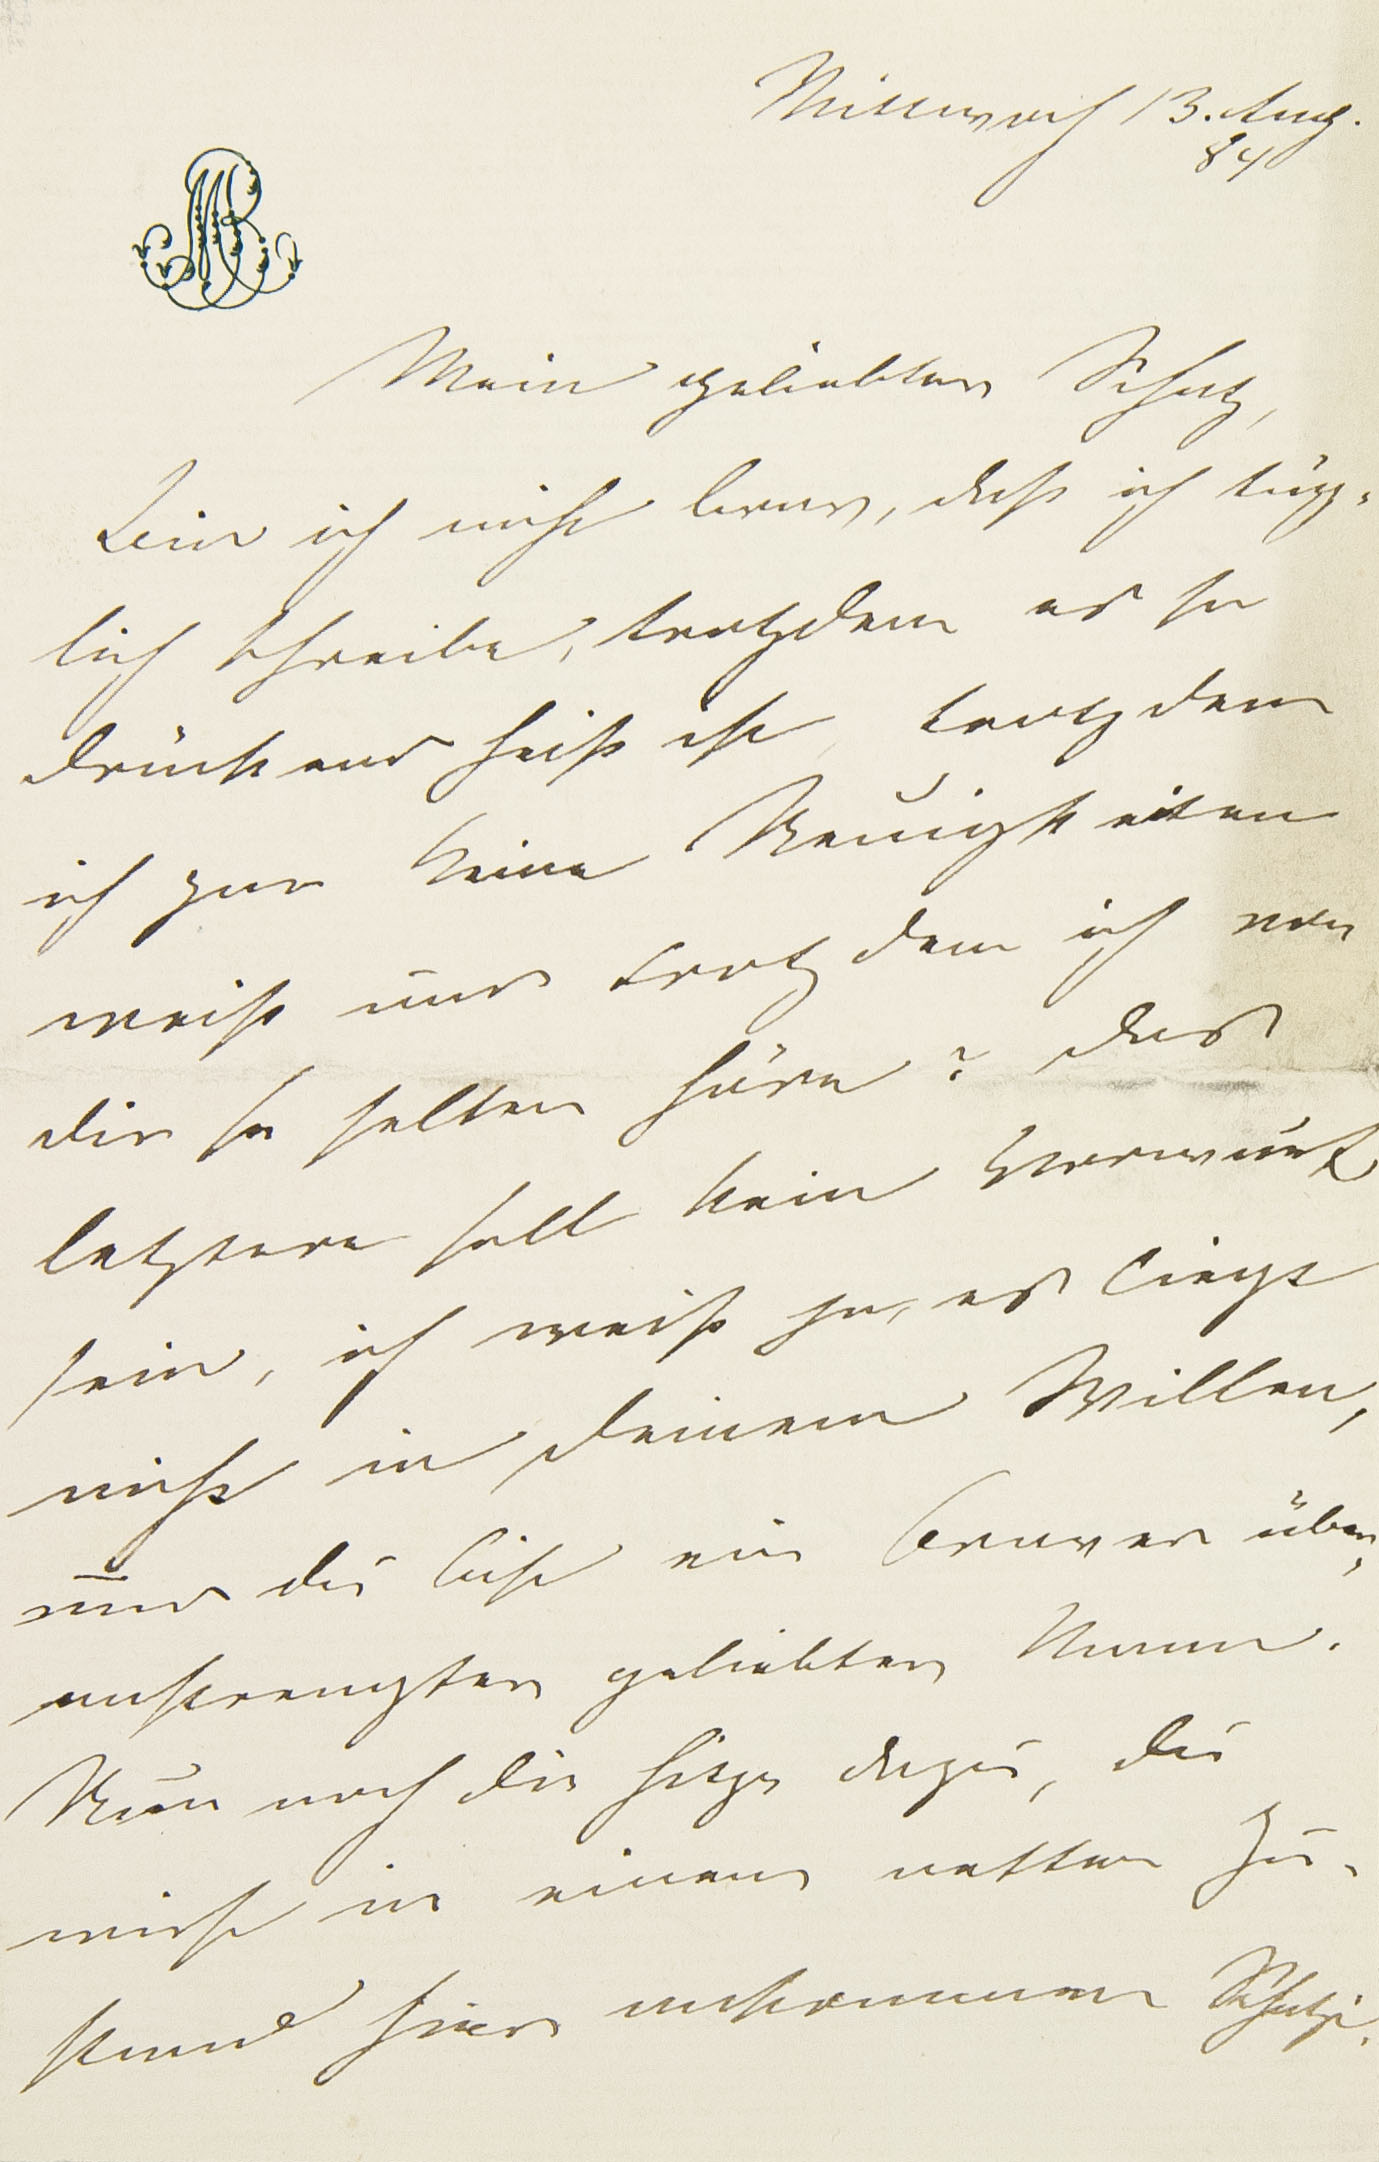 Mittwoch 13. Aug.
84
Mein geliebter Schatz,
Bin ich nicht brav, daß ich täg-
lich schreibe, trotzdem es so
drückend heiß ist, trotzdem
ich gar keine Neuigkeiten
weiß und trotzdem ich von
dir so selten höre? das
letztere soll kein Vorwurf
sein, ich weiß ja, es liegt
nicht in deinem Willen,
und du bist ein braver über-
anstrengter geliebter Mann.
Nun noch die Hitze dazu, du
wirst in einem netten Zu-
stand hier ankommen Schatzi.